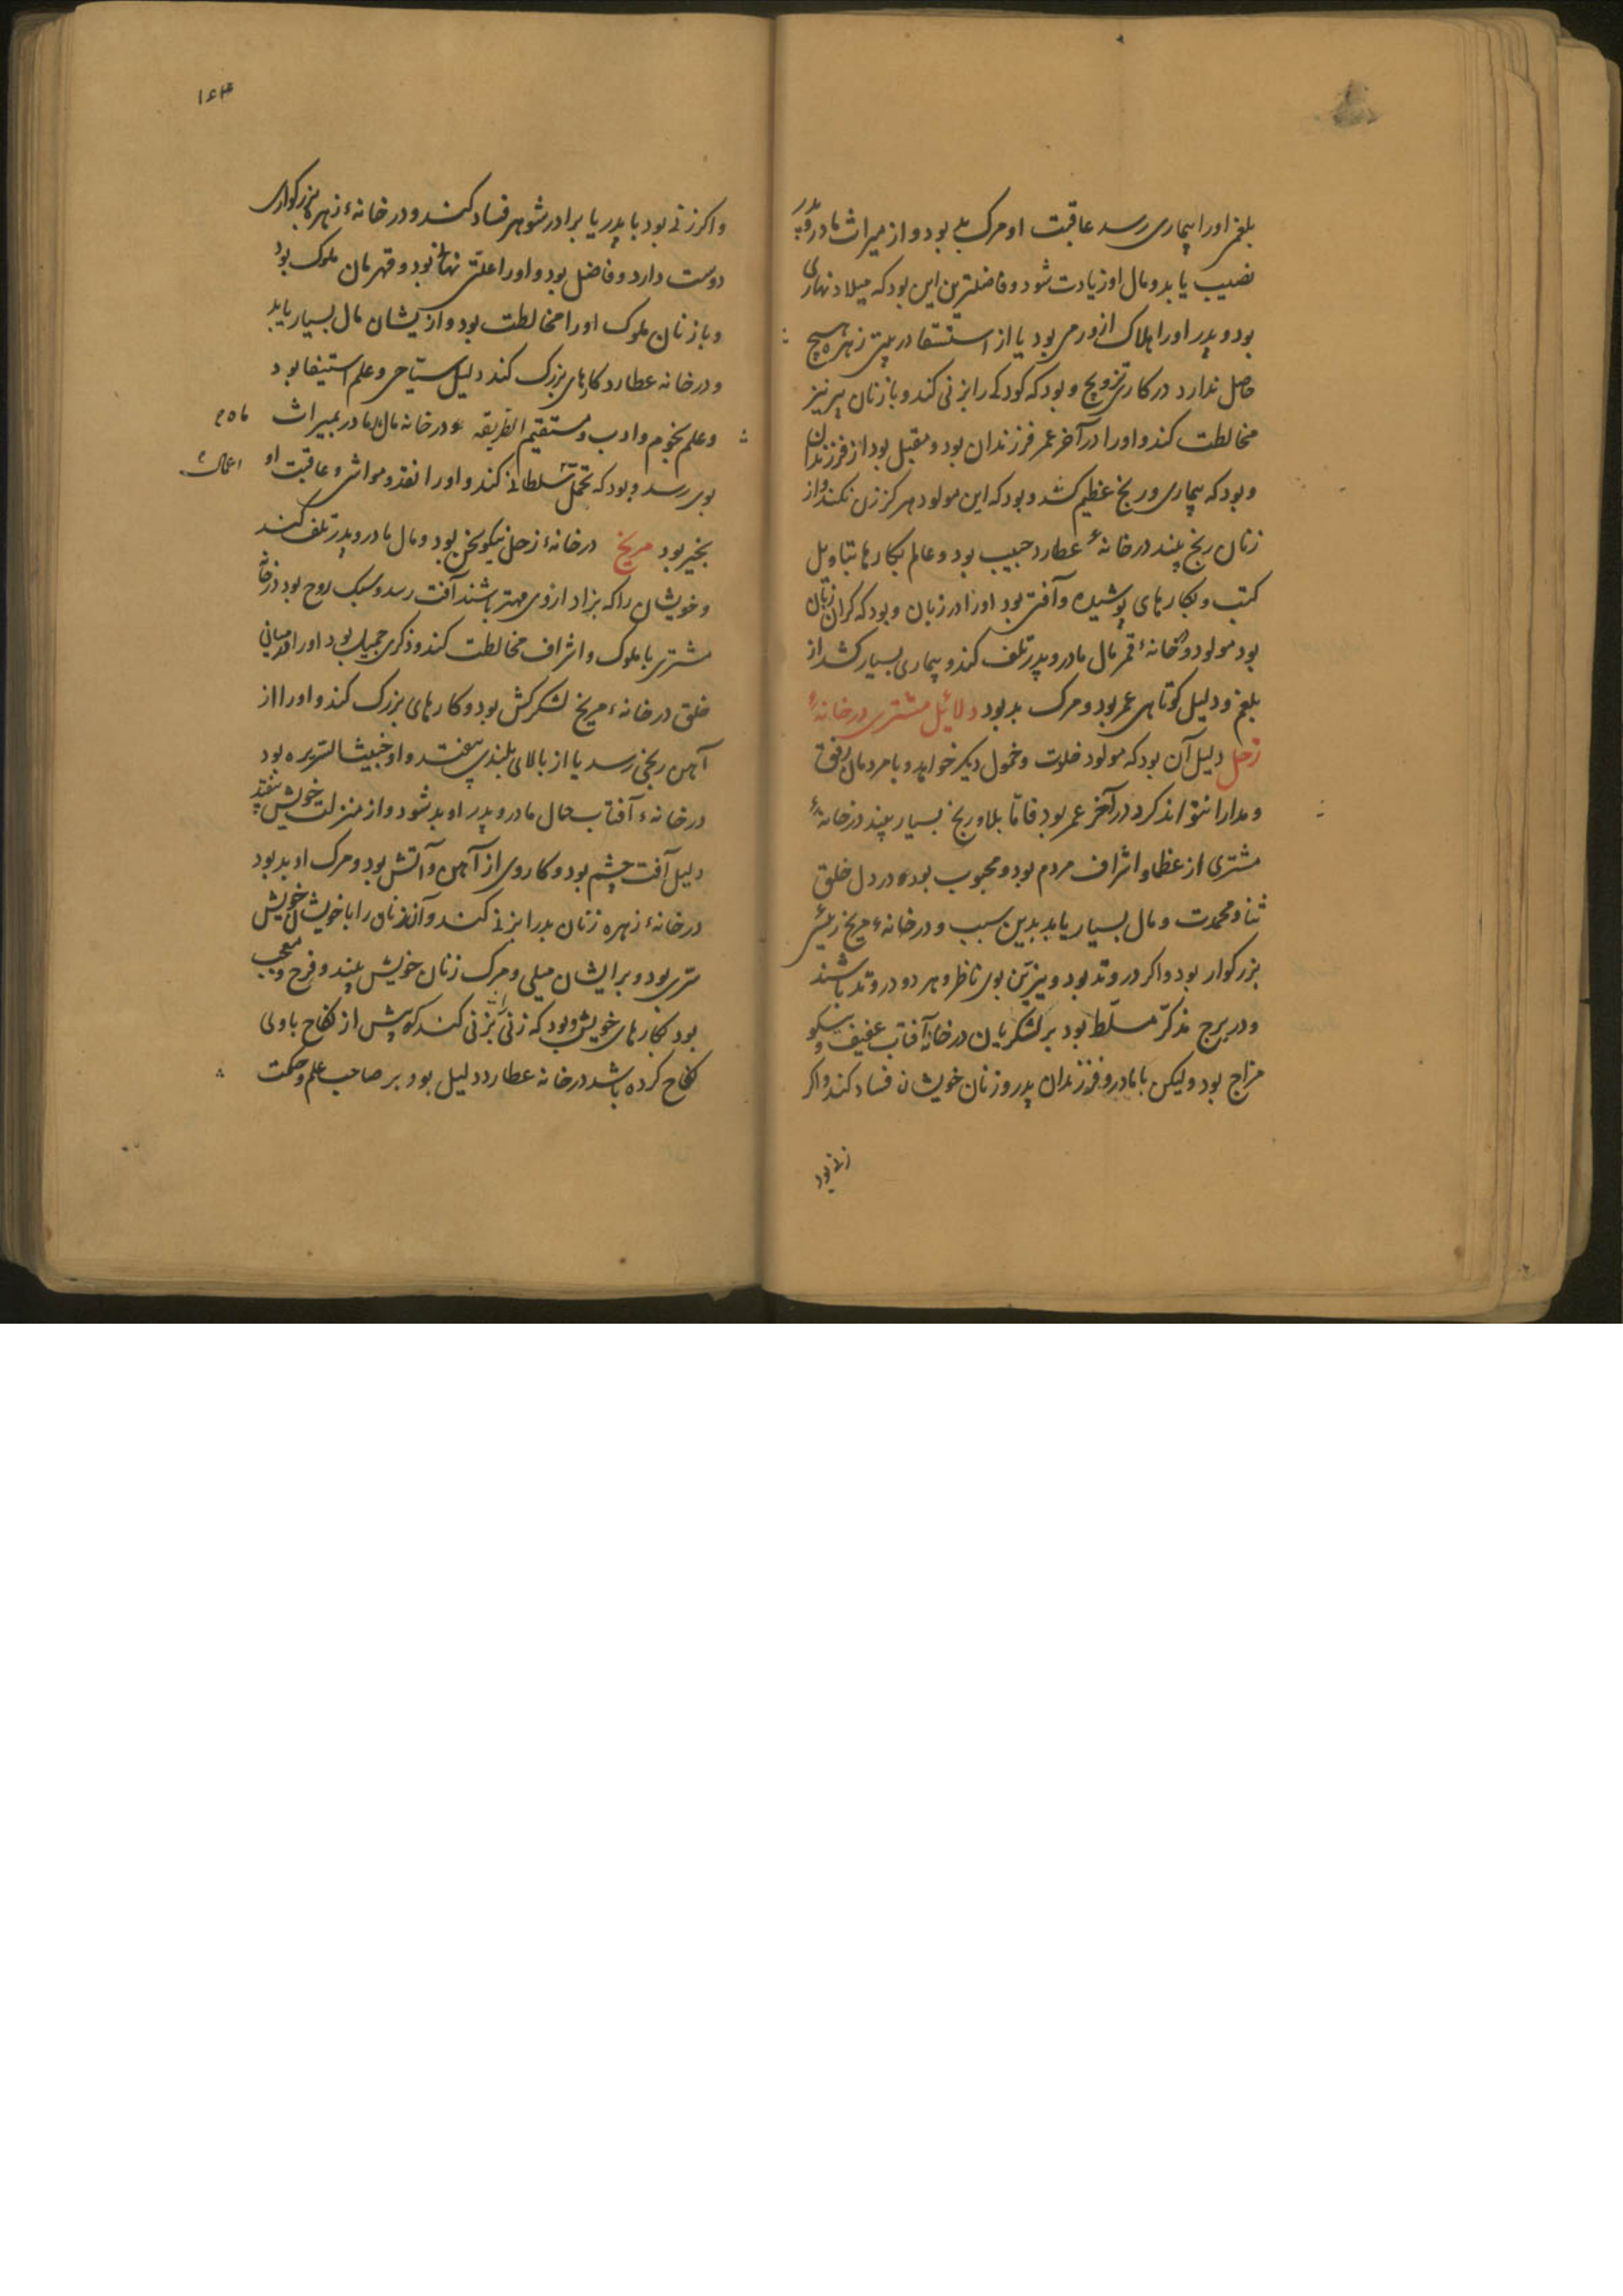 بلغم اورا بیماری رسد عاقبت او مرک بلی بود و از میراث مادر و پدر
نصیب یابد و مال او زیادت شود و فاضلترین این بود که میلاد نهاری
بود و پدر اورا هلاک از ورمی بود یا از استسقا در بیت زهره هیچ
حاصل ندارد در کار تزویج و بود که کودکی را بزنی کند و با زنان پیر نیز
مخالطت کند و اورا در آخر عمر فرزندان بود و مقبل بود از فرزندان
و بود که بیماری و رنج عظیم کشد و بود که این مولود هرکز زن نکند و از
زنان رنج بیند در خانهٔ عطارد حبیب بود و عالم بکارها بتاویل
کتب و بکارهای پوشیده و آفتی بود اورا در زبان و بود که کران زبان
بود مولود و بخانهٔ قمر مال مادر و پدر تلف کند و بیماری بسیار کشد از
بلغم و دلیل کوتاهی عمر بود و مرک بد بود دلائل مشتری در خانهٔ
زحل دلیل آن بود که مولود خلوت و خمول دیگر خواهد و با مردمان رفق
و مدارا نتواند کرد در آخر عمر بود فاما بلا و رنج بسیار بیند در خانهٔ
مشتری از عظما و اشراف مردم بود و محبوب بود و در دل خلق
ثنا و محمدت و مال بسیار یابد بدین سبب و در خانهٔ مریخ رئیس
بزرکوار بود و اکر در وتد بود و نیّرین بوی ناظر و هر دو در وتد باشند
و در برج مذکّر مسلّط بود بر لشکریان در خانهٔ آفتاب عفیف و نیکو
مزاج بود و لیکن با مادر و فرزندان پدر و زنان خویشان فساد کند و اکر
زنی بود
۱۶۳
و اکر زنی بود با پدر یا برادر شوهر فساد کند و در خانهٔ زهره بزرکواری
دوست دارد و فاضل بود و اورا علتی نهانی بود و قهرمان ملوک بود
و با زنان ملوک اورا مخالطت بود و از یشان مال بسیار یابد
و در خانه عطارد کارهای بزرک کند دلیل سیّاحی و علم استیفا بود
و علم نجوم و ادب و مستقیم الطریقه و در خانه ماه مال مادر بمیراث
بوی رسد و بود که تحمل سلطانی کند و اورا نقد و مواشی و عاقبت او
بخیر بود مریخ در خانهٔ زحل نیکوبخت بود و مال مادر و پدر تلف کند
و خویشان را که بزاد ازوی مهتر باشند آفت رسد و سبک روح بود در خانهٔ
مشتری با ملوک و اشراف مخالطت کند و ذکری جمیل بود اورا در میانی
خلق در خانهٔ مریخ لشکرکش بود و کارهای بزرک کند و اورا از
آهن رنجی رسد یا از بالای بلندی بیفتد و او خبیث السریره بود
در خانهٔ آفتاب حال مادر و پدر او بد شود و از منزلت خویش بیفتد
دلیل آفت چشم بود و کار وی از آهن و آتش بود و مرک او بد بود
در خانهٔ زهره زنان بد را بزنی کند و آن زنان را با خویشان خویش
سری بود و بر ایشان میلی و مرک زنان خویش بیند و فرح و معجب
بود بکارهای خویش و بود که زنی را بزنی کند که پیش از نکاح با وی
نکاح کرده باشد در خانه عطارد دلیل بود بر صاحب علم و حکمت